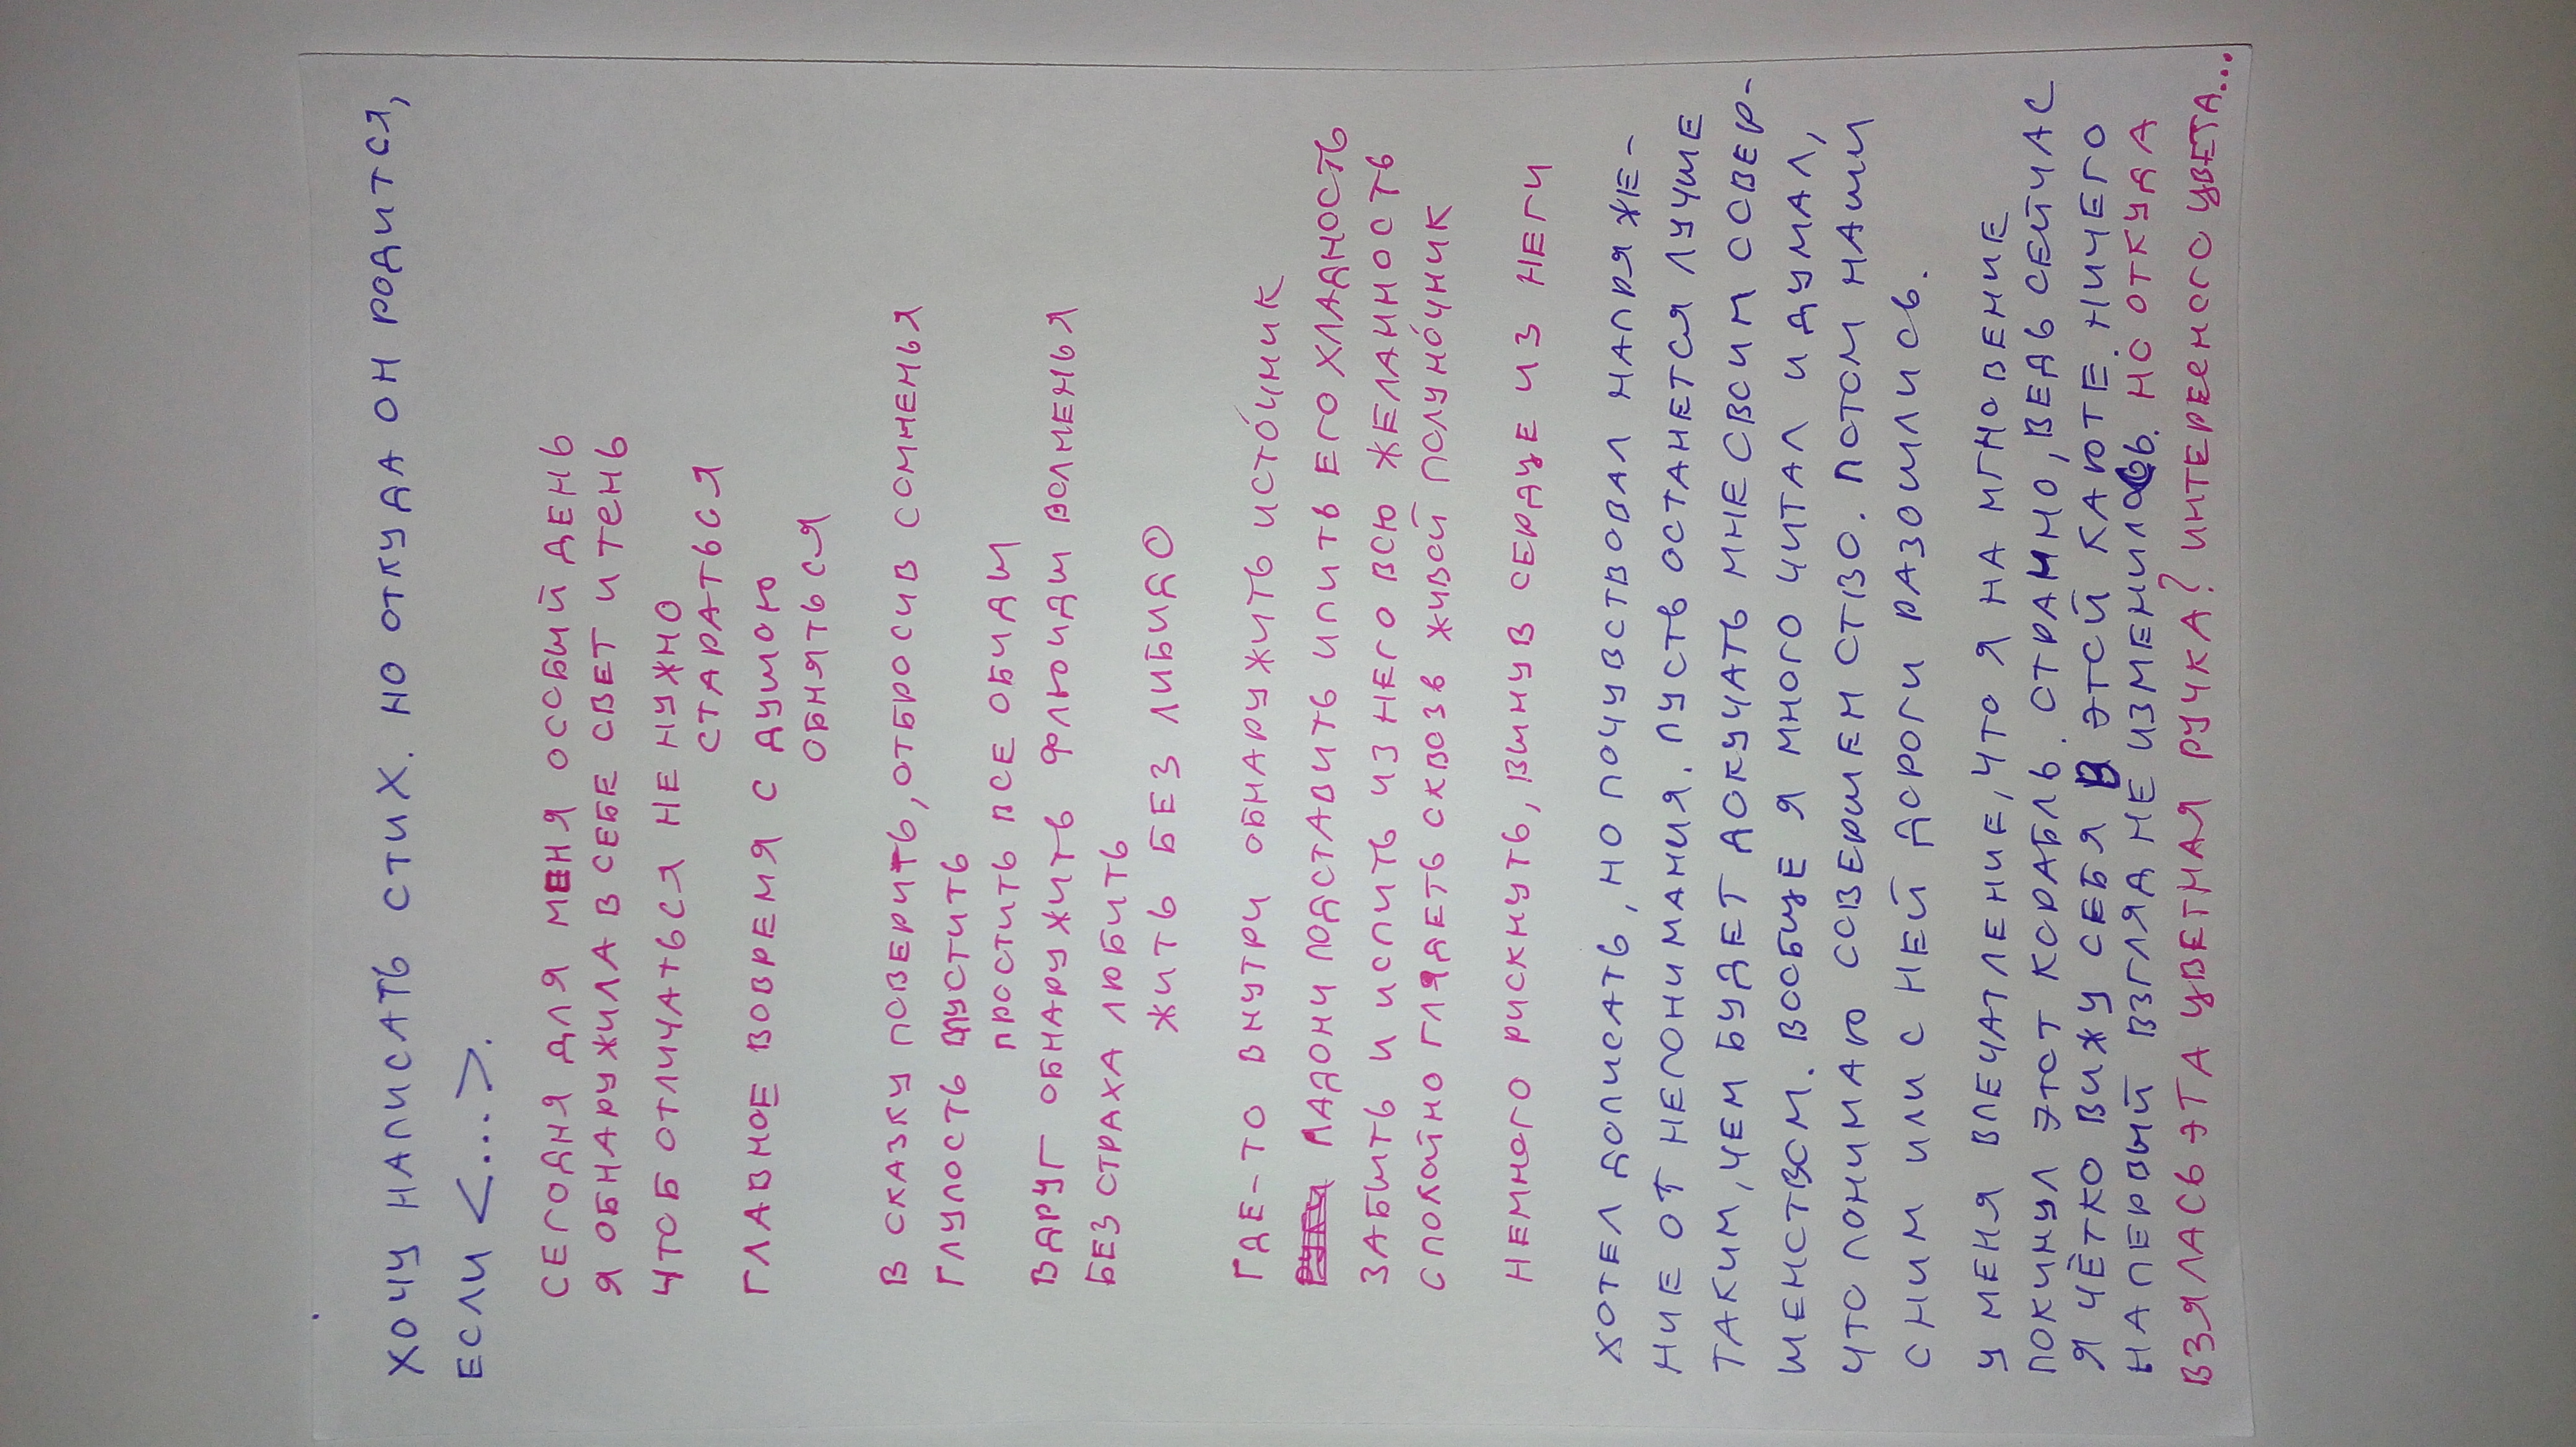 ХОЧУ НАПИСАТЬ СТИХ. НО ОТКУДА ОН РОДИТСЯ,
ЕСЛИ <...>.
СЕГОДНЯ ДЛЯ МЕНЯ ОСОБЫЙ ДЕНЬ
Я ОБНАРУЖИЛА В СЕБЕ СВЕТ И ТЕНЬ
ЧТОБ ОТЛИЧАТЬСЯ НЕ НУЖНО
СТАРАТЬСЯ
ГЛАВНОЕ ВОВРЕМЯ С ДУШОЮ
ОБНЯТЬСЯ
В СКАЗКУ ПОВЕРИТЬ, ОТБРОСИВ СОМНЕНЬЯ
ГЛУПОСТЬ ПУСТИТЬ
ПРОСТИТЬ ВСЕ ОБИДЫ
ВДРУГ ОБНАРУЖИТЬ ФЛЮИДЫ ВОЛНЕНЬЯ
БЕЗ СТРАХА ЛЮБИТЬ
ЖИТЬ БЕЗ ЛИБИДО
ГДЕ-ТО ВНУТРИ ОБНАРУЖИТЬ ИСТО́ЧНИК
ЛАДОНИ ПОДСТАВИТЬ И ПИТЬ ЕГО ХЛАДНОСТЬ
ЗАБЫТЬ И ИСПИТЬ ИЗ НЕГО ВСЮ ЖЕЛАННОСТЬ
СПОКОЙНО ГЛЯДЕТЬ СКВОЗЬ ЖИВОЙ ПОЛУНО́ЧНИК
НЕМНОГО РИСКНУТЬ, ВШНУВ СЕРДЦЕ ИЗ НЕГИ
ХОТЕЛ ДОПИСАТЬ, НО ПОЧУВСТВОВАЛ НАПРЯЖЕ-
НИЕ ОТ НЕПОНИМАНИЯ. ПУСТЬ ОСТАНЕТСЯ ЛУЧШЕ
ТАКИМ, ЧЕМ БУДЕТ ДОКУЧАТЬ МНЕ СВОИМ СОВЕР-
ШЕНСТВОМ. ВООБЩЕ Я МНОГО ЧИТАЛ И ДУМАЛ,
ЧТО ПОНИМАЮ СОВЕРШЕНСТВО. ПОТОМ НАШИ
С НИМ ИЛИ С НЕЙ ДОРОГИ РАЗОШЛИСЬ.
У МЕНЯ ВПЕЧАТЛЕНИЕ, ЧТО Я НА МГНОВЕНИЕ
ПОКИНУЛ ЭТОТ КОРАБЛЬ. СТРАННО, ВЕДЬ СЕЙЧАС
Я ЧЁТКО ВИЖУ СЕБЯ В ЭТОЙ КАЮТЕ. НИЧЕГО
НА ПЕРВЫЙ ВЗГЛЯД НЕ ИЗМЕНИЛОСЬ. НО ОТКУДА
ВЗЯЛАСЬ ЭТА ЦВЕТНАЯ РУЧКА? ИНТЕРЕСНОГО ЦВЕТА...